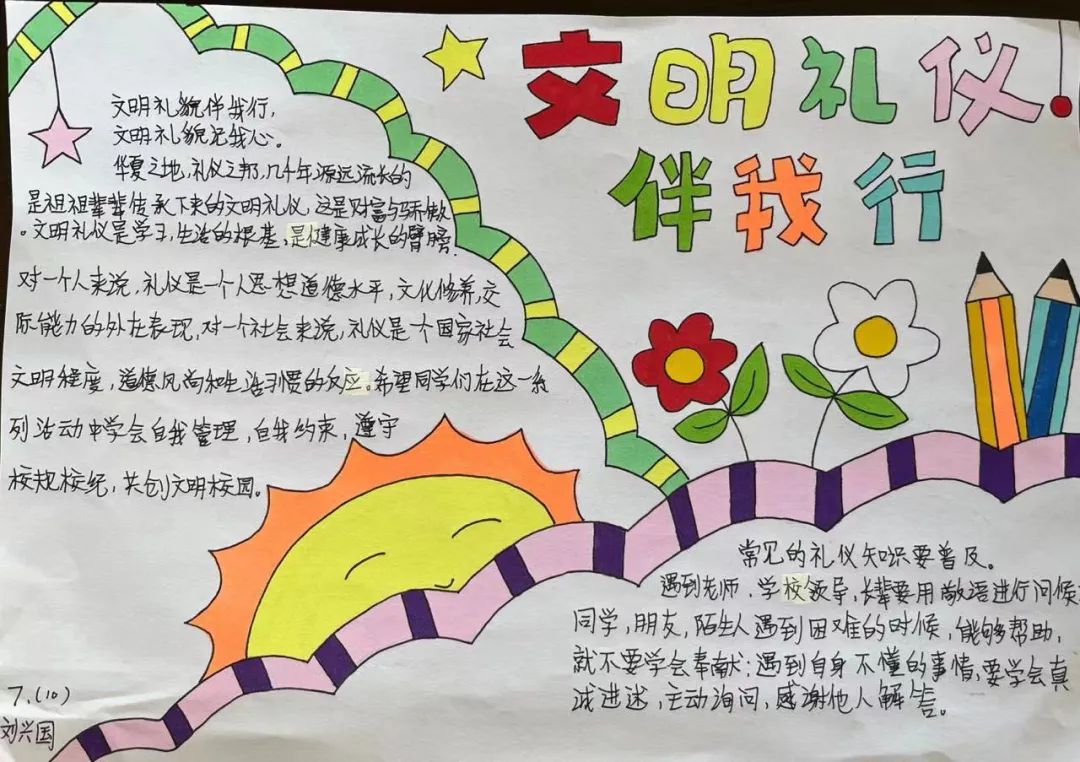 文明礼仪!
伴我行
文明礼貌伴我行,
文明礼貌记我心。
华夏之地,礼仪之邦,几千年源远流长的
是祖祖辈辈传承下来的文明礼仪,这是财富与骄傲
。文明礼仪是学习,生活的根基,是健康成长的臂膀.
对一个人来说,礼仪是一个人思想道德水平,文化修养,交
际能力的外在表现,对一个社会来说,礼仪是一个国家社会
文明程度,道德风尚和生活习惯的反应。希望同学们在这一系
列活动中学会自我管理,自我约束,遵守
校规校纪,共创文明校园。
常见的礼仪知识要普及。
遇到老师、学校领导,长辈要用敬语进行问候;
同学,朋友,陌生人遇到困难的时候,能够帮助,
就不要学会奉献;遇到自身不懂的事情,要学会真
诚进迷,主动询问,感谢他人解答。
7.(10)
刘兴国